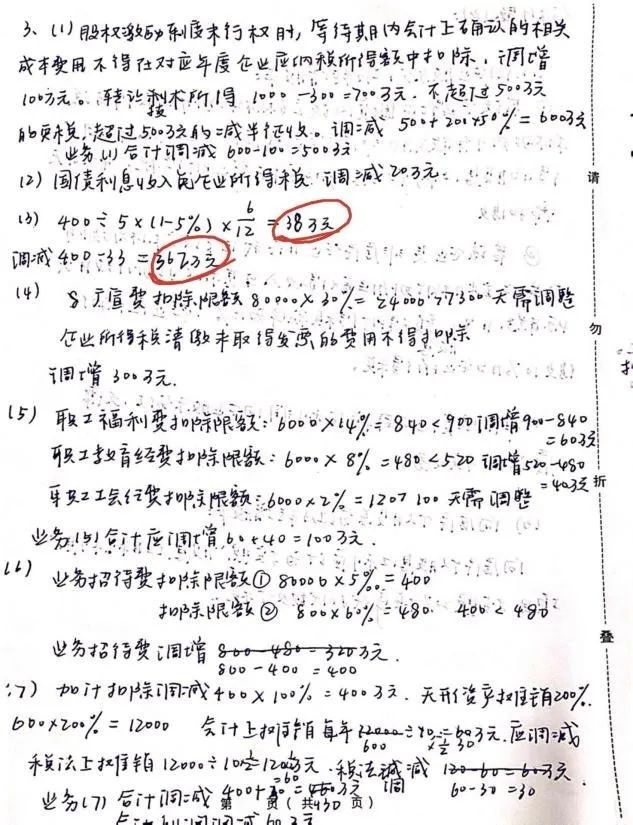 3、(1) 股权激励制度未行权时，等待期内会计上确认的相关
成本费用不得在对应年度企业应纳税所得额中扣除，调增
100万元。转让技术所得 1000-300=700万元. 不超过500万元
的免税，超过500万元的减半征收。调减 500+200×50%=600万元
业务(1)合计调减 600-100=500万元
(2) 国债利息收入免企业所得税 调减20万元.
(3) 400÷5×(1-5%)×6/12=38万元
调减 400-33=362万元
(4) 广宣费扣除限额 80000×30%=24000>7300 无需调整
企业所得税清缴未取得发票的费用不得扣除
调增 300万元.
(5) 职工福利费扣除限额：6000×14%=840<900 调增900-840
=60万元
职工教育经费扣除限额：6000×8%=480<520 调增520-480
=40万元
职工工会经费扣除限额：6000×2%=120>100 无需调整
业务(5)合计应调增60+40=100万元.
(6) 业务招待费扣除限额① 80000×5‰=400
扣除限额② 800×60%=480. 400<480
业务招待费调增 800-480=320万元.
800-400=400
(7) 加计扣除调减400×100%=400万元. 无形资产摊销200%.
600×200%=12000 会计上摊销每年 =60万元. 应调减
600 30
税法上摊销 12000÷10 =120万元. 税法 调减 120-60=60万元
=60 60-30=30
业务(7)合计调减 400+30=430万元
第 页（共 页）
请
勿
折
叠